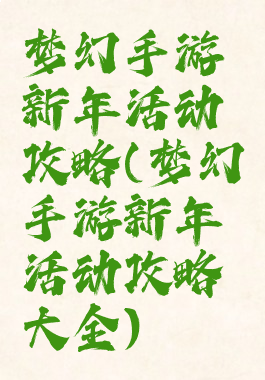 梦幻手游
新年活动
攻略(梦幻
手游新年
活动攻略
大全)